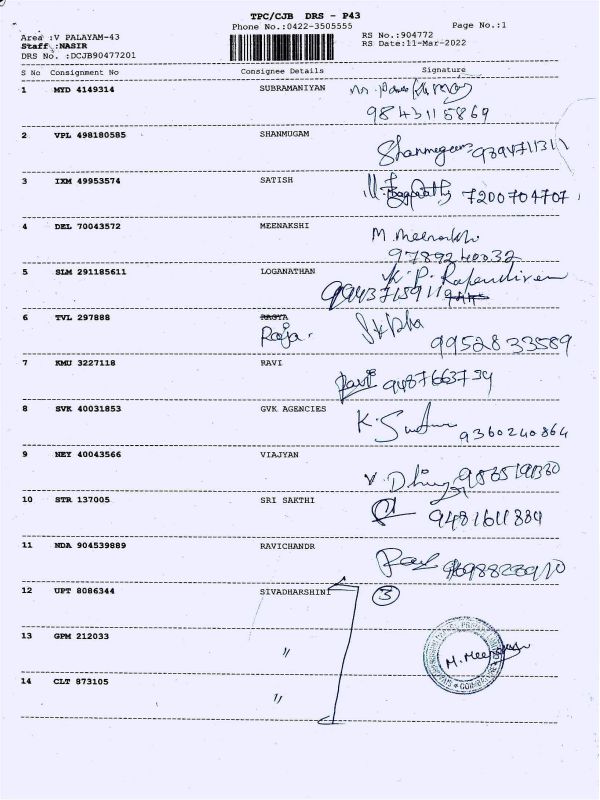 TPC/CJB DRS - P43
Phone No.:0422-3505555 Page No.:1
Area :V PALAYAM-43 RS No.:904772
Staff :NASIR RS Date:11-Mar-2022
DRS No. :DCJB90477201
S No Consignment No Consignee Details Signature
1 MYD 4149314 SUBRAMANIYAN
9843115869
2 VPL 498180585 SHANMUGAM
Shanmugam 9894711311
3 IXM 49953574 SATISH
7200704707
4 DEL 70043572 MEENAKSHI M. Meenakshi
9789240032
5 SLM 291185611 LOGANATHAN K. P. Rajendiran
9943715911
6 TVL 297888 RAGYA
Raja.
9952833589
7 KMU 3227118 RAVI
Ravi
8 SVK 40031853 GVK AGENCIES
9360240864
9 NEY 40043566 VIAJYAN
10 STR 137005 SRI SAKTHI
11 NDA 904539889 RAVICHANDR
12 UPT 8086344 SIVADHARSHINI 3
13 GPM 212033 "
M. Meenakshi
14 CLT 873105 "